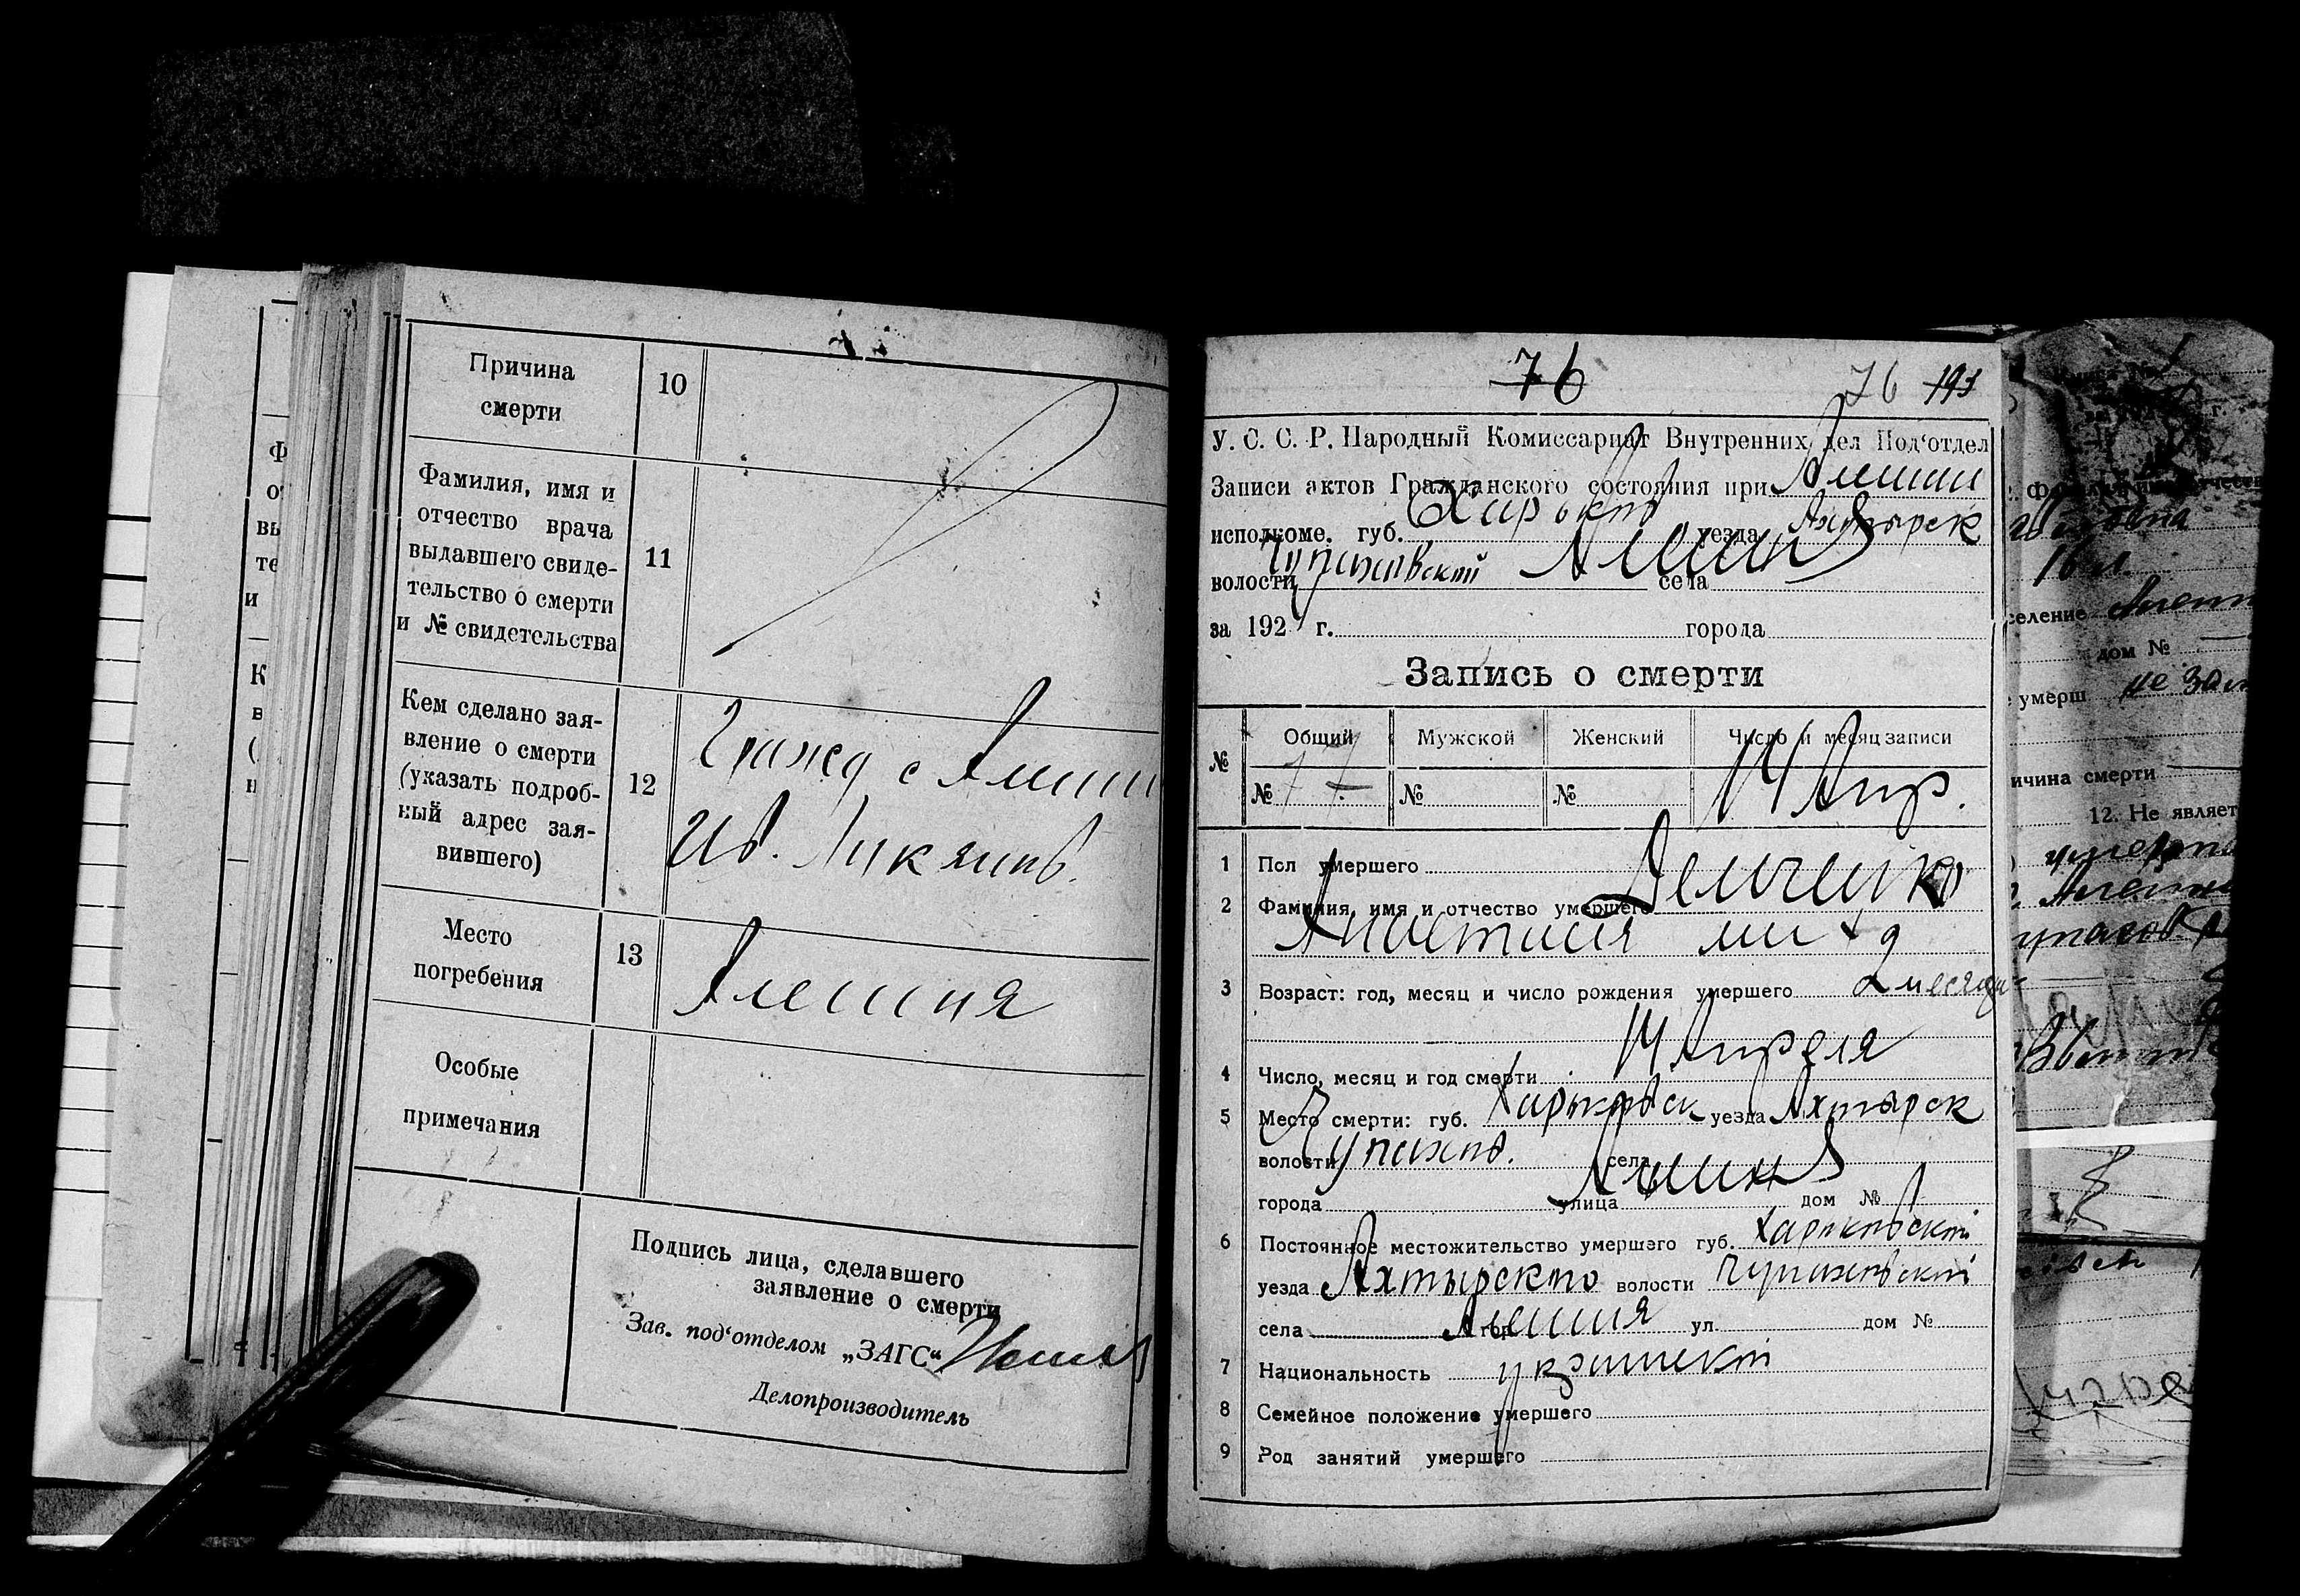 Причина
смерти
10
Фамилия, имя и
отчество врача
выдавшего свиде-
тельство о смерти
и № свидетельства
11
Кем сделано зая-
вление о смерти
(указать подроб-
ный адрес зая-
вившего)
12
Гражд с Алешни
Ив. Лукянов.
Место
погребения
13
Алешня
Особые
примечания
Подпись лица, сделавшего
заявление о смерти
Зав. под‘отделом „ЗАГС“
Делопроизводитель
76
76 193
У. С. С. Р. Народный Комиссариат Внутренних дел Под‘отдел
Записи актов Гражданского состояния при
исполкоме. губ. Харьков уезда Ахтырск
волости Чупаховский села
за 192 г. города
Запись о смерти
№ Общий Мужской Женский Число и месяц записи
№ 77 № № 14 Апр.
1 Пол умершего
2 Фамилия, имя и отчество умершего Демченко
Анастасия мих
3 Возраст: год, месяц и число рождения умершего 2 месяца
4 Число, месяц и год смерти 14 Апреля
5 Место смерти: губ. Харьковск уезда Ахтырск
волости Чупахов. села
города улица дом №
6 Постоянное местожительство умершего губ. Харьковской
уезда Ахтырского волости Чупаховской
села Алешня гор. ул. дом №
7 Национальность
8 Семейное положение умершего
9 Род занятий умершего
16 л.
селение
дом №
умерш
ичина смерти
12. Не являет